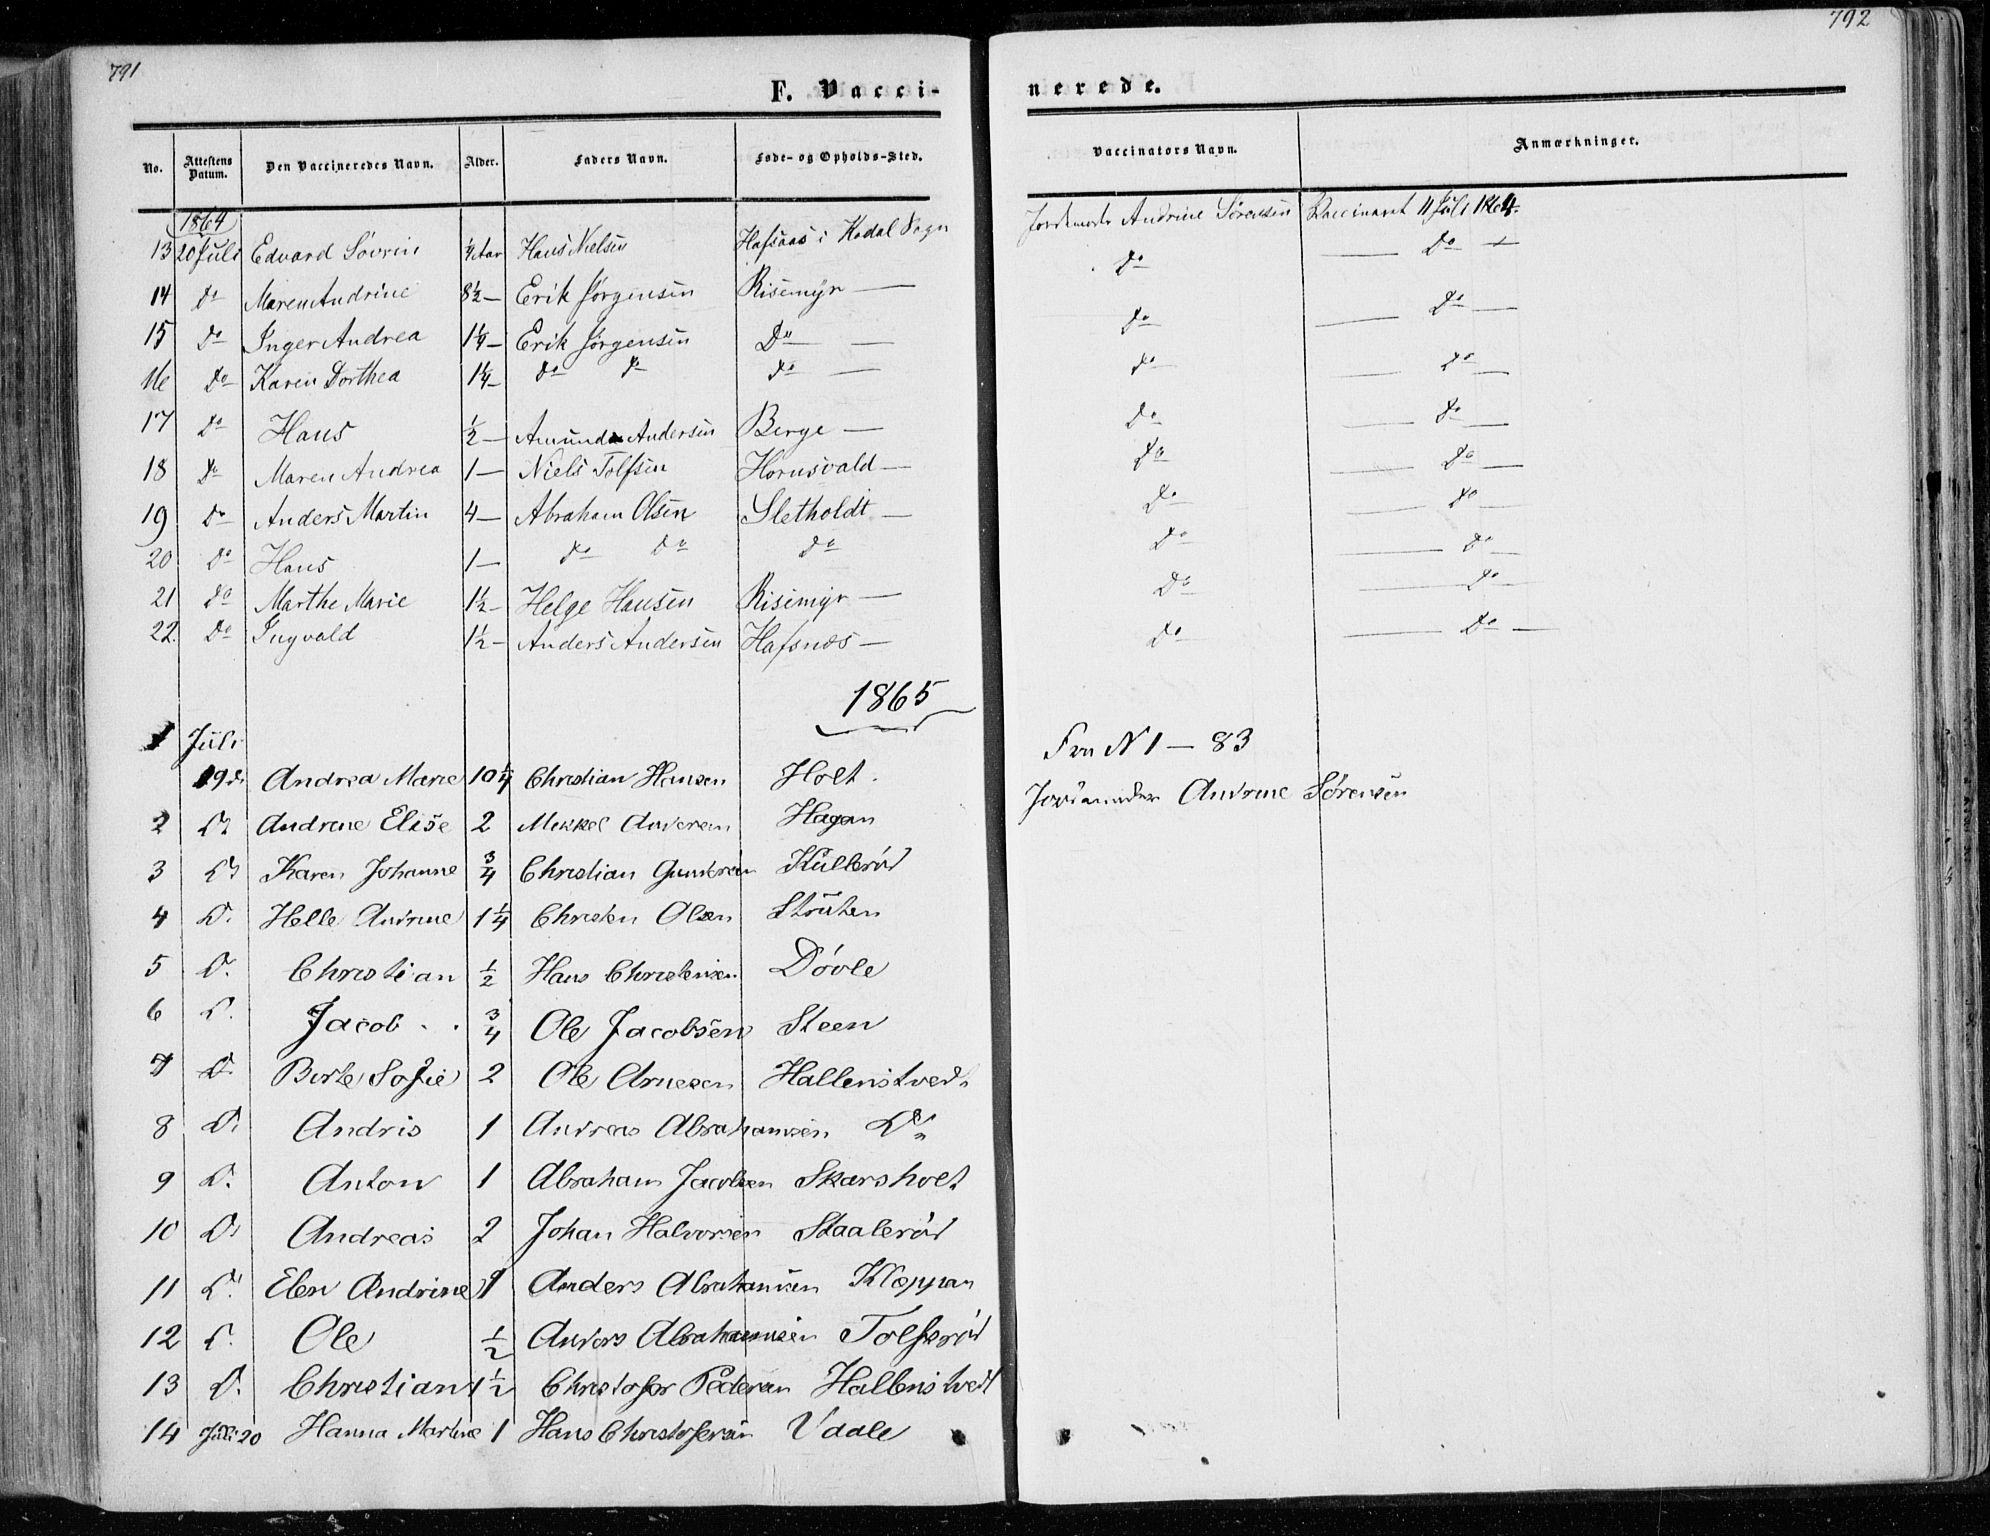 791
792
F. Vacci-
nerede.
No. Attestens Datum. Den Vaccineredes Navn. Alder. Faders Navn. Føde- og Opholds-Sted. Vaccinators Navn. Anmærkninger.
1864
13 20 Juli Edvard Sövrin ¼ Aar Hans Nielsen Hafsaas i Kodal Sogn Jordemoder Andrine Sørensen Vaccineret 11 Juli 1864.
14 Do Maren Andrine 8½ — Erik Jørgensen Risemyr — Do — Do —
15 Do Inger Andrea 1¼ — Erik Jørgensen Do — Do — Do —
16 Do Karen Dorthea 1¼ — Do Do Do — Do — Do —
17 Do Hans ½ — Amund Andersen Berge — Do — Do —
18 Do Maren Andrea 1 — Niels Tolfsen Hornsvald — Do — Do —
19 Do Anders Martin 4 — Abraham Olsen Sletholdt — Do — Do —
20 Do Hans 1 — Do Do Do Do — Do —
21 Do Marthe Marie 1½ — Helge Hansen Risemyr — Do — Do —
22. Do Ingvald 1½ — Anders Andersen Hafsnæs — Do — Do —
1865
1 Juli Fra N 1 — 83
19 d. Andrea Marie 10¼ Christian Hansen Holt. Jordemoder Andrine Sørensen
2 D. Andrine Elise 2 Mikkel Andersen Hagan
3 D. Karen Johanne ¾ Christian Gundersen Küllerød
4 D. Helle Andrine 1¼ Christen Olsen Strüten
5 D. Christian ½ Hans Christensen Dövle
6 D. Jacob . . ¾ Ole Jacobsen Steen
7 D. Berte Sofie 2 Ole Arnesen Hallenstvedt
8 D. Andris 1 Andreas Abrahamsen Do
9 D. Anton 1 Abraham Jacobsen Skarsholt
10 D. Andreas 2 Johan Halvorsen Staalerød
11 D. Elen Andrine 1 Anders Abrahamsen Kloppan
12 D. Ole ½ Anders Abrahamsen Tolfsrød
13 D. Christian 1½ Christofer Pedersen Hallenstvedt
14 Juli 20 Hanna Martine 1 Hans Christofersen Vdale